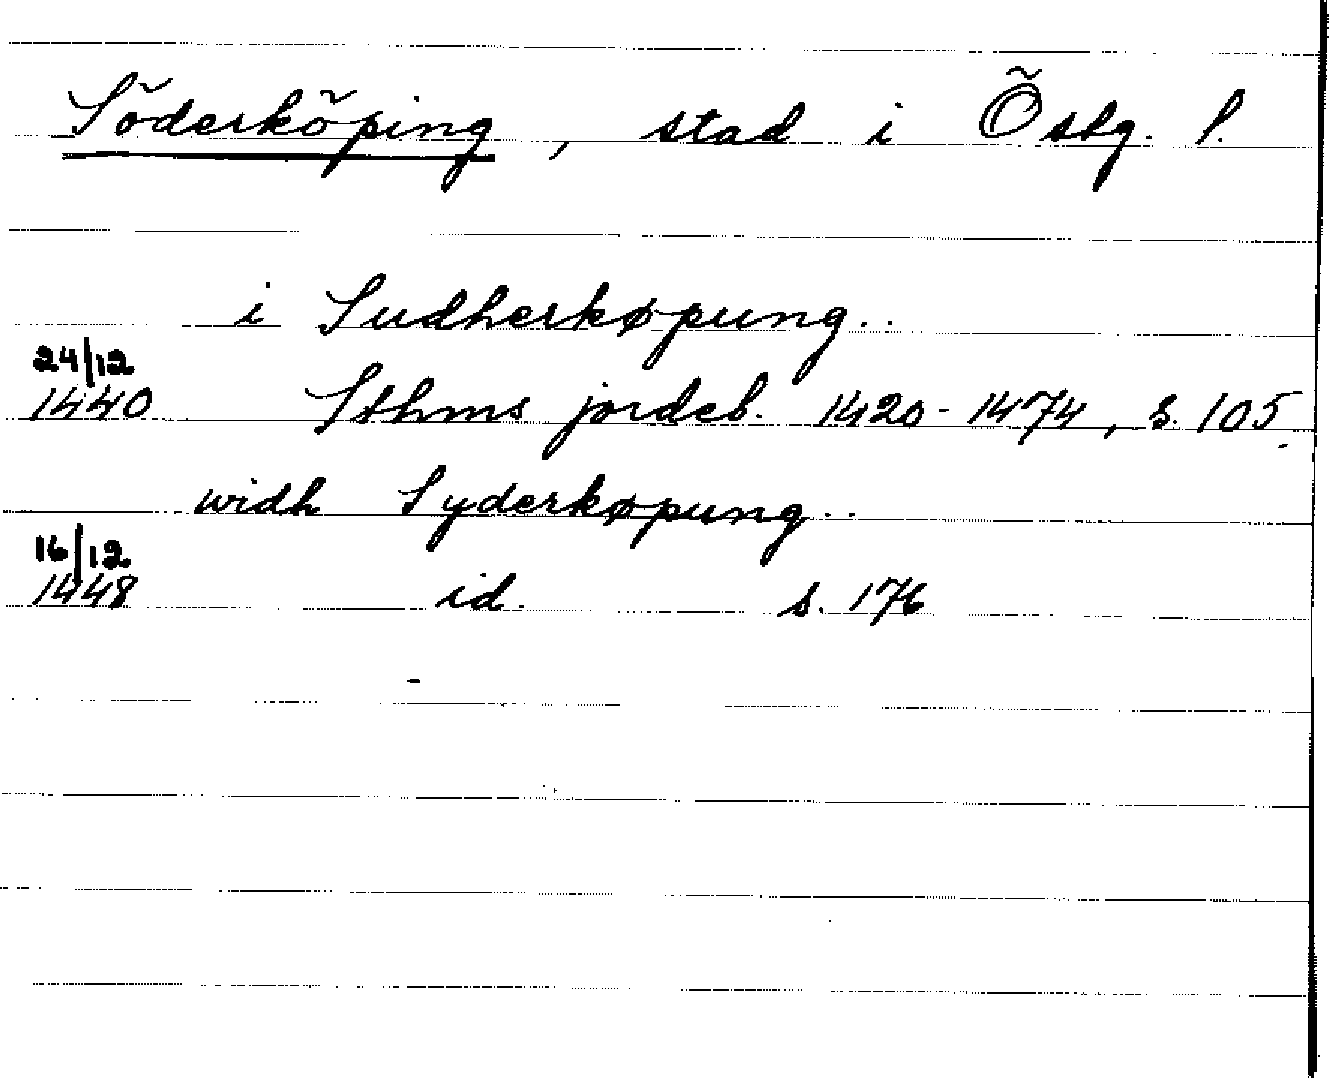 Söderköping, stad i Östg. l.
i Sudherkøpung..
24/12
1440 Sthms jordeb. 1420-1474, s. 105
widh Syderkøpung..
16/12
1448 id. s. 176